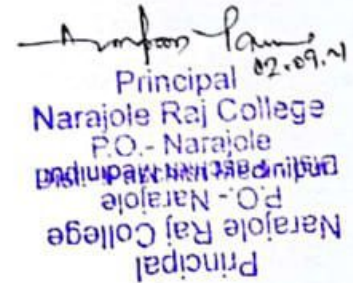 02.09.21
Principal
Narajole Raj College
P.O.- Narajole
P.O.- Narajole
Narajole Raj College
Principal